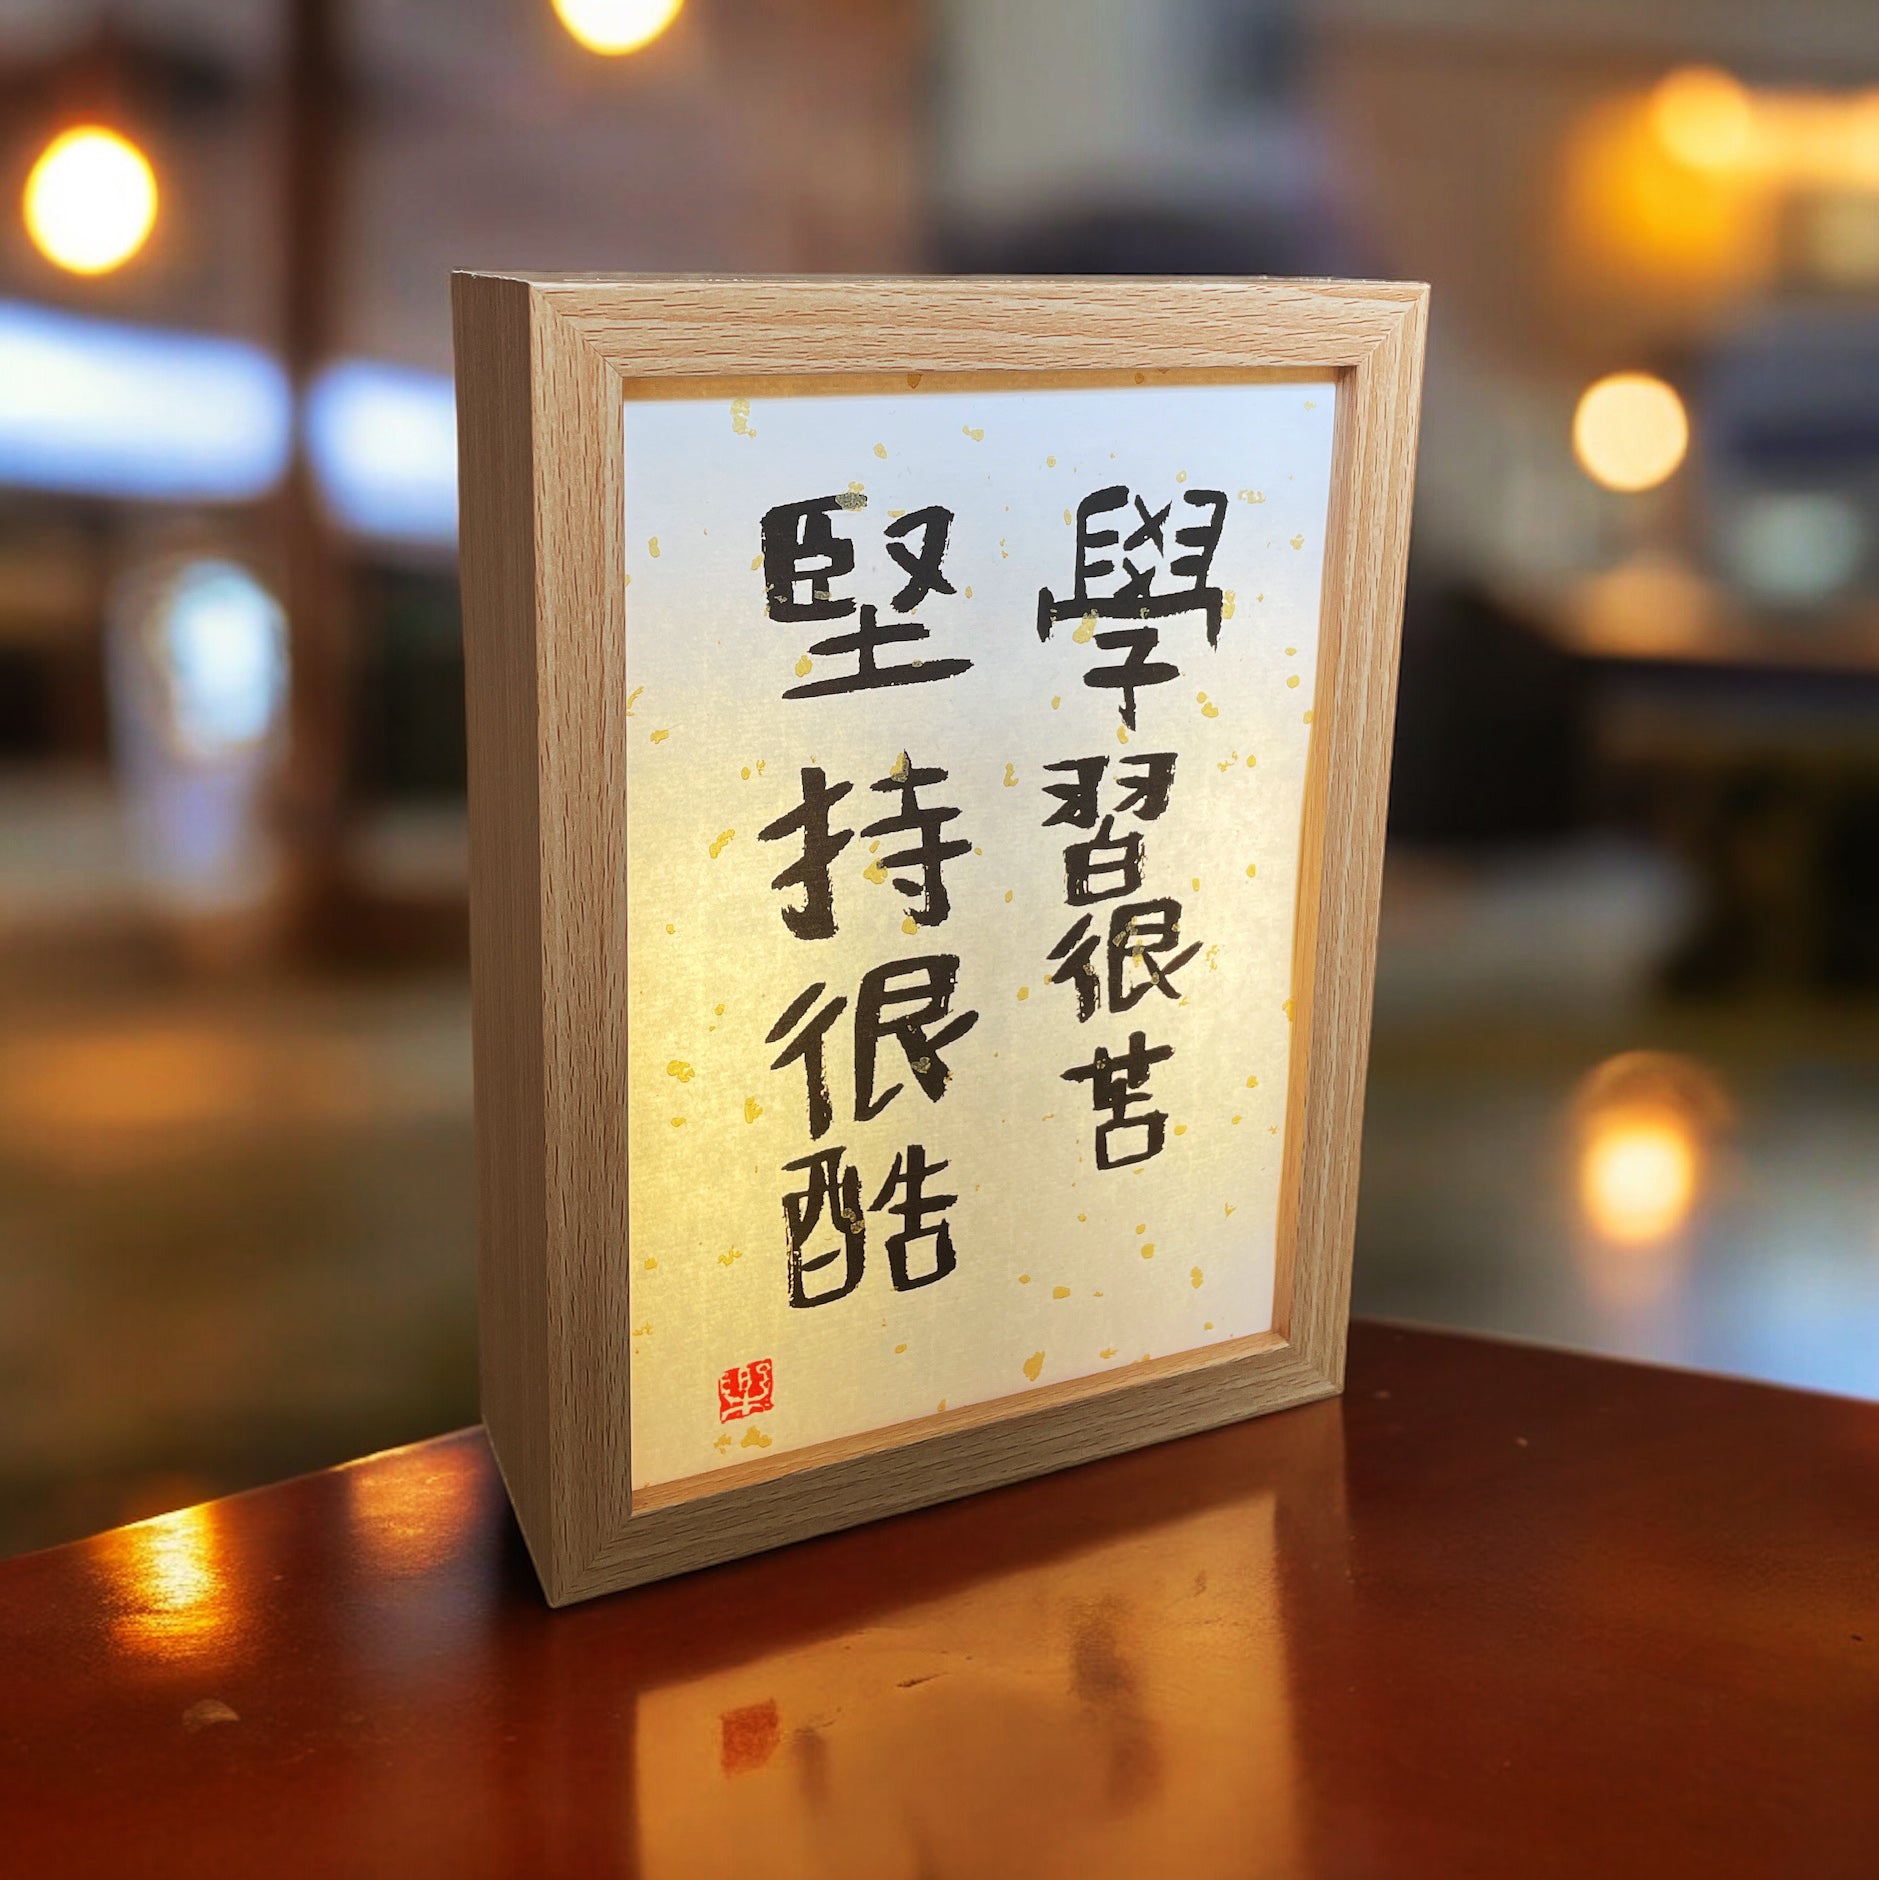 學習很苦
堅持很酷